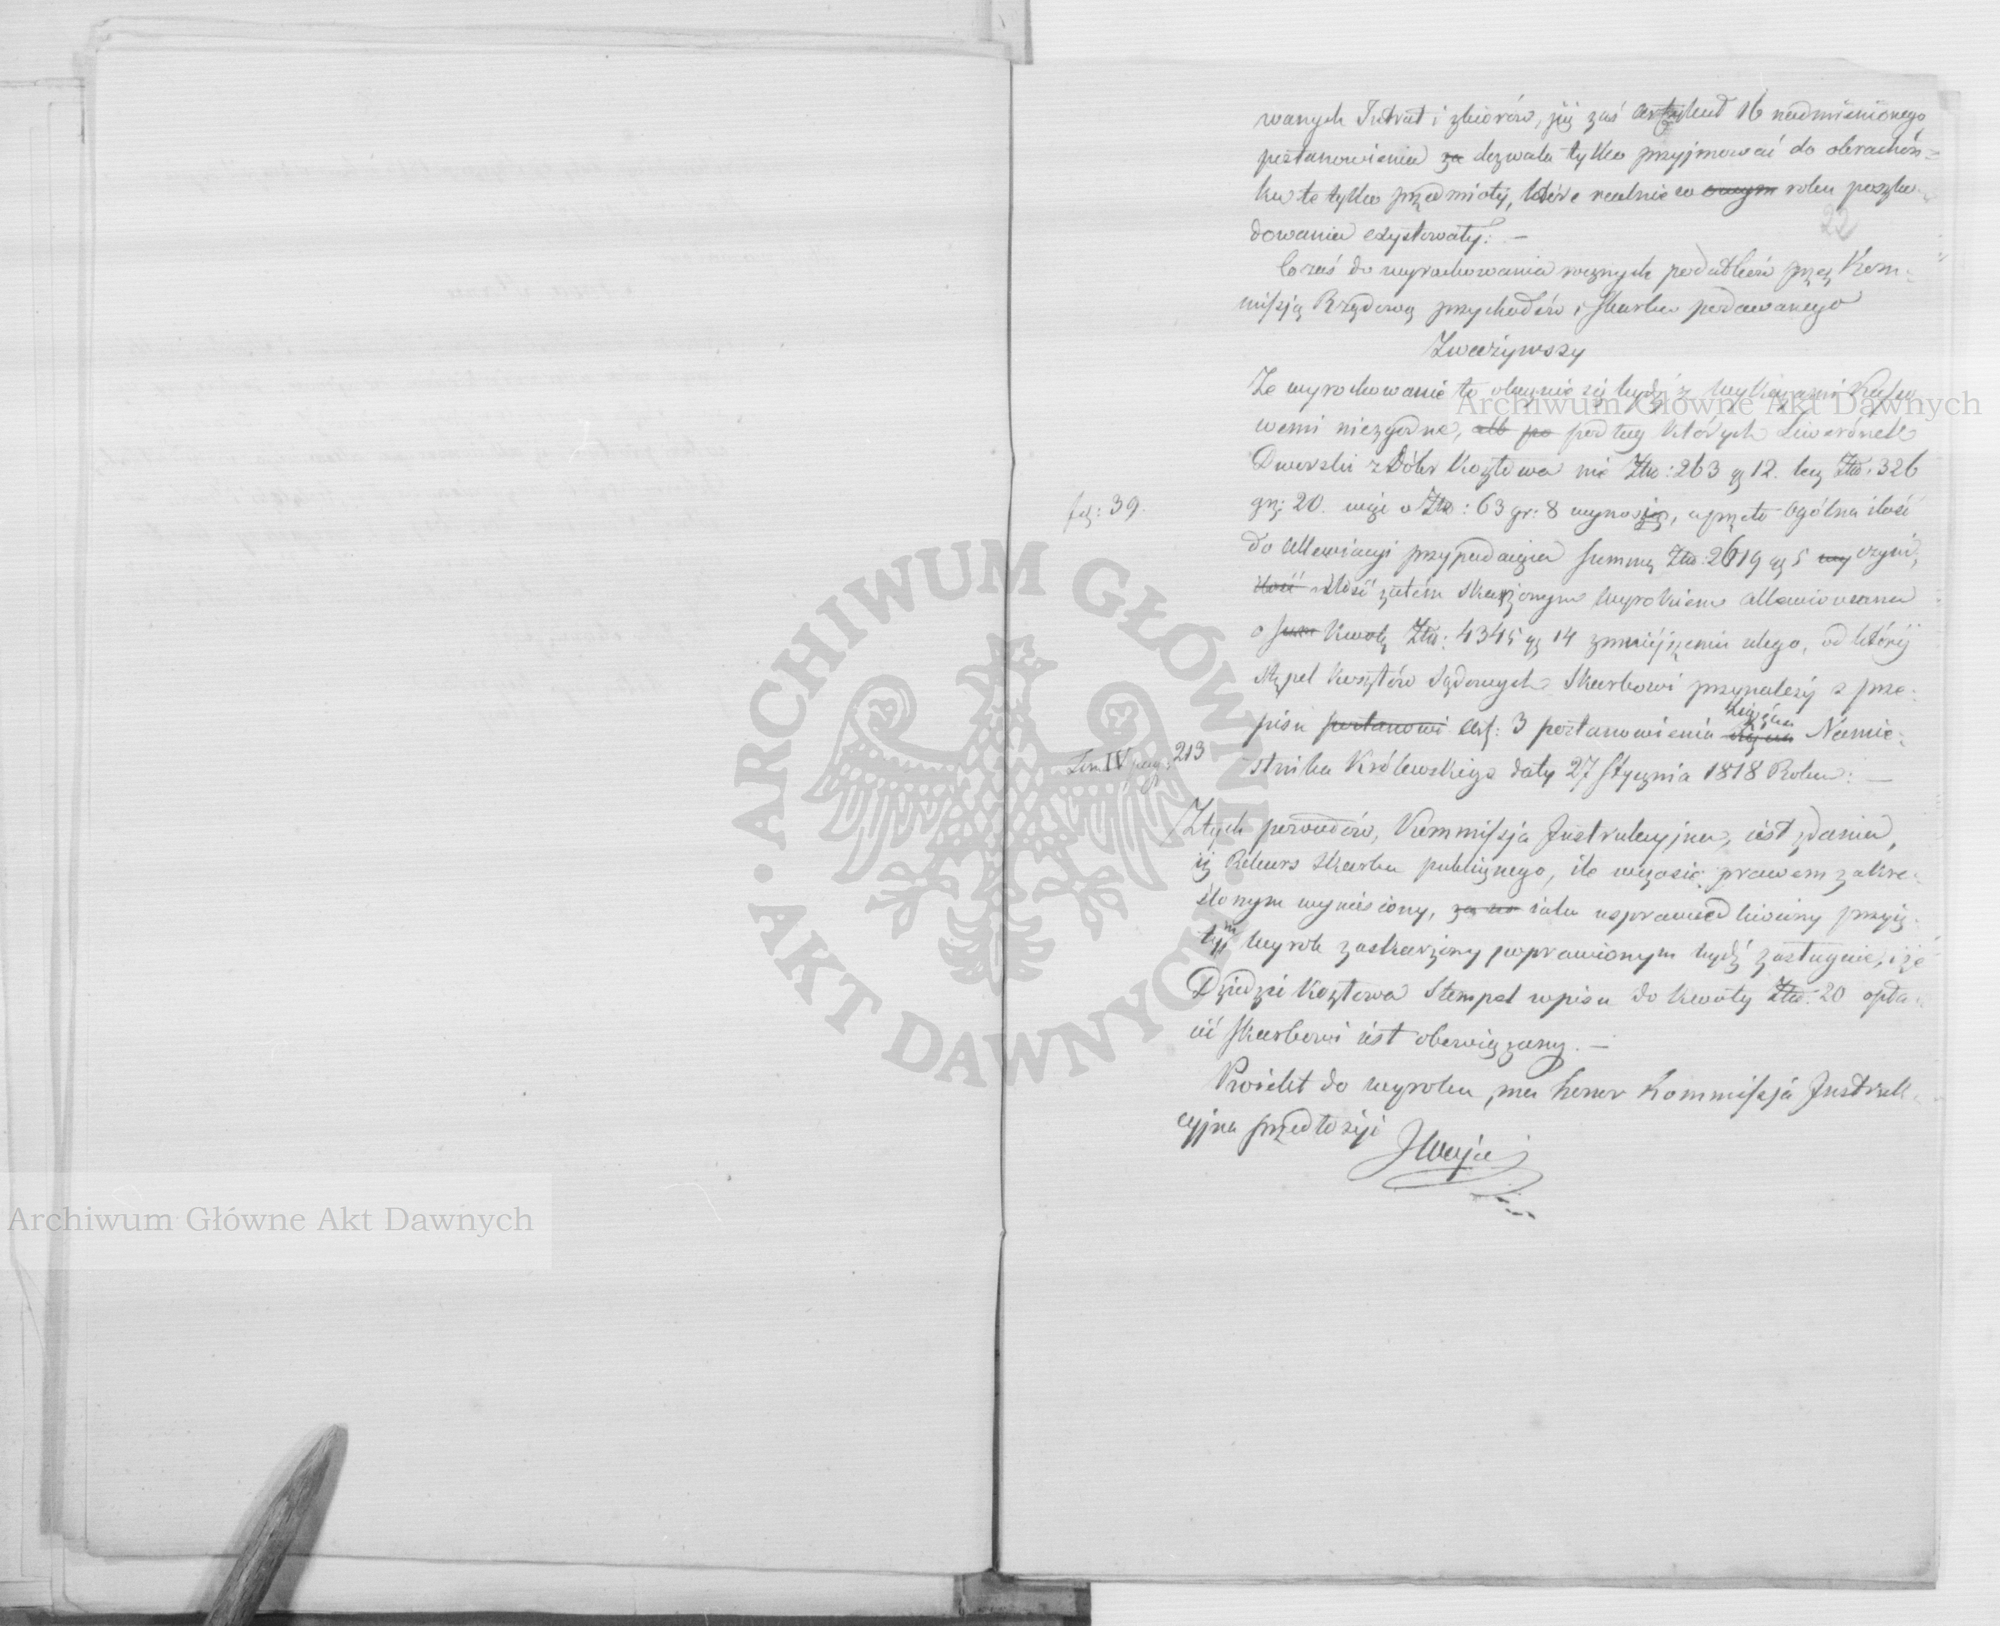 wanych Intrat i zbiorów, gij zaś Artykuł 16 nadmienionego
postanowienia za dozwala tylko przyjmować do obrachún=
ku te tylko przedmioty, które realnie w owym roku poszko-
22
dowania exystowały: —
Co zaś do wyrachowania rocznych podatków przez Kom-
missją Rządową przychodów i Skarbu podawanego
Zważywszy
Ze wyrachowanie to okazuie się bydź z Wykazami Kasso
wemi niezgodne, alb po podług których Liwerunek
Dworski z Dóbr Kozłowa nie Złtt: 263 gr 12. lecz Złtt: 326
fol: 39.
gr: 20. więc o Złtt: 63 gr: 8 wynosi, a przeto ogólna ilość
do Allewiacyi przypadaiąca summę Złtt: 2619 gr 5 czyni,
ilość zatém skarżonym Wyrokiem allewiowana
o Kwotę Złtt: 4345 gr 14 zmnieyszeniu ulega, od któréj
Stępel kosztów Sądowych Skarbowi przynależy z prze-
pisu postanowi Art: 3 postanowienia Xięcia Namie-
Tom IV pag: 213
stnika Królewskiego daty 27 Stycznia 1818 Roku: —
Z tych powodów, Kommissja Instrukcyjna, iest zdania,
iż Rekurs Skarbu publicznego, ile w czasie prawem zakre-
ślonym wyniesiony, iako usprawiedliwiony przyię-
tym Wyrok zaskarżony poprawionym bydź zasługuie, i że
Dziedzic Kozłowa Stempel wpisu do kwoty Złtt: 20 opła-
cić Skarbowi iest obowiązany. —
Proiekt do wyroku, ma honor Kommissja Instruk-
cyjna przedłożyć
Archiwum Główne Akt Dawnych
Archiwum Główne Akt Dawnych
ARCHIWUM GŁÓWNE AKT DAWNYCH